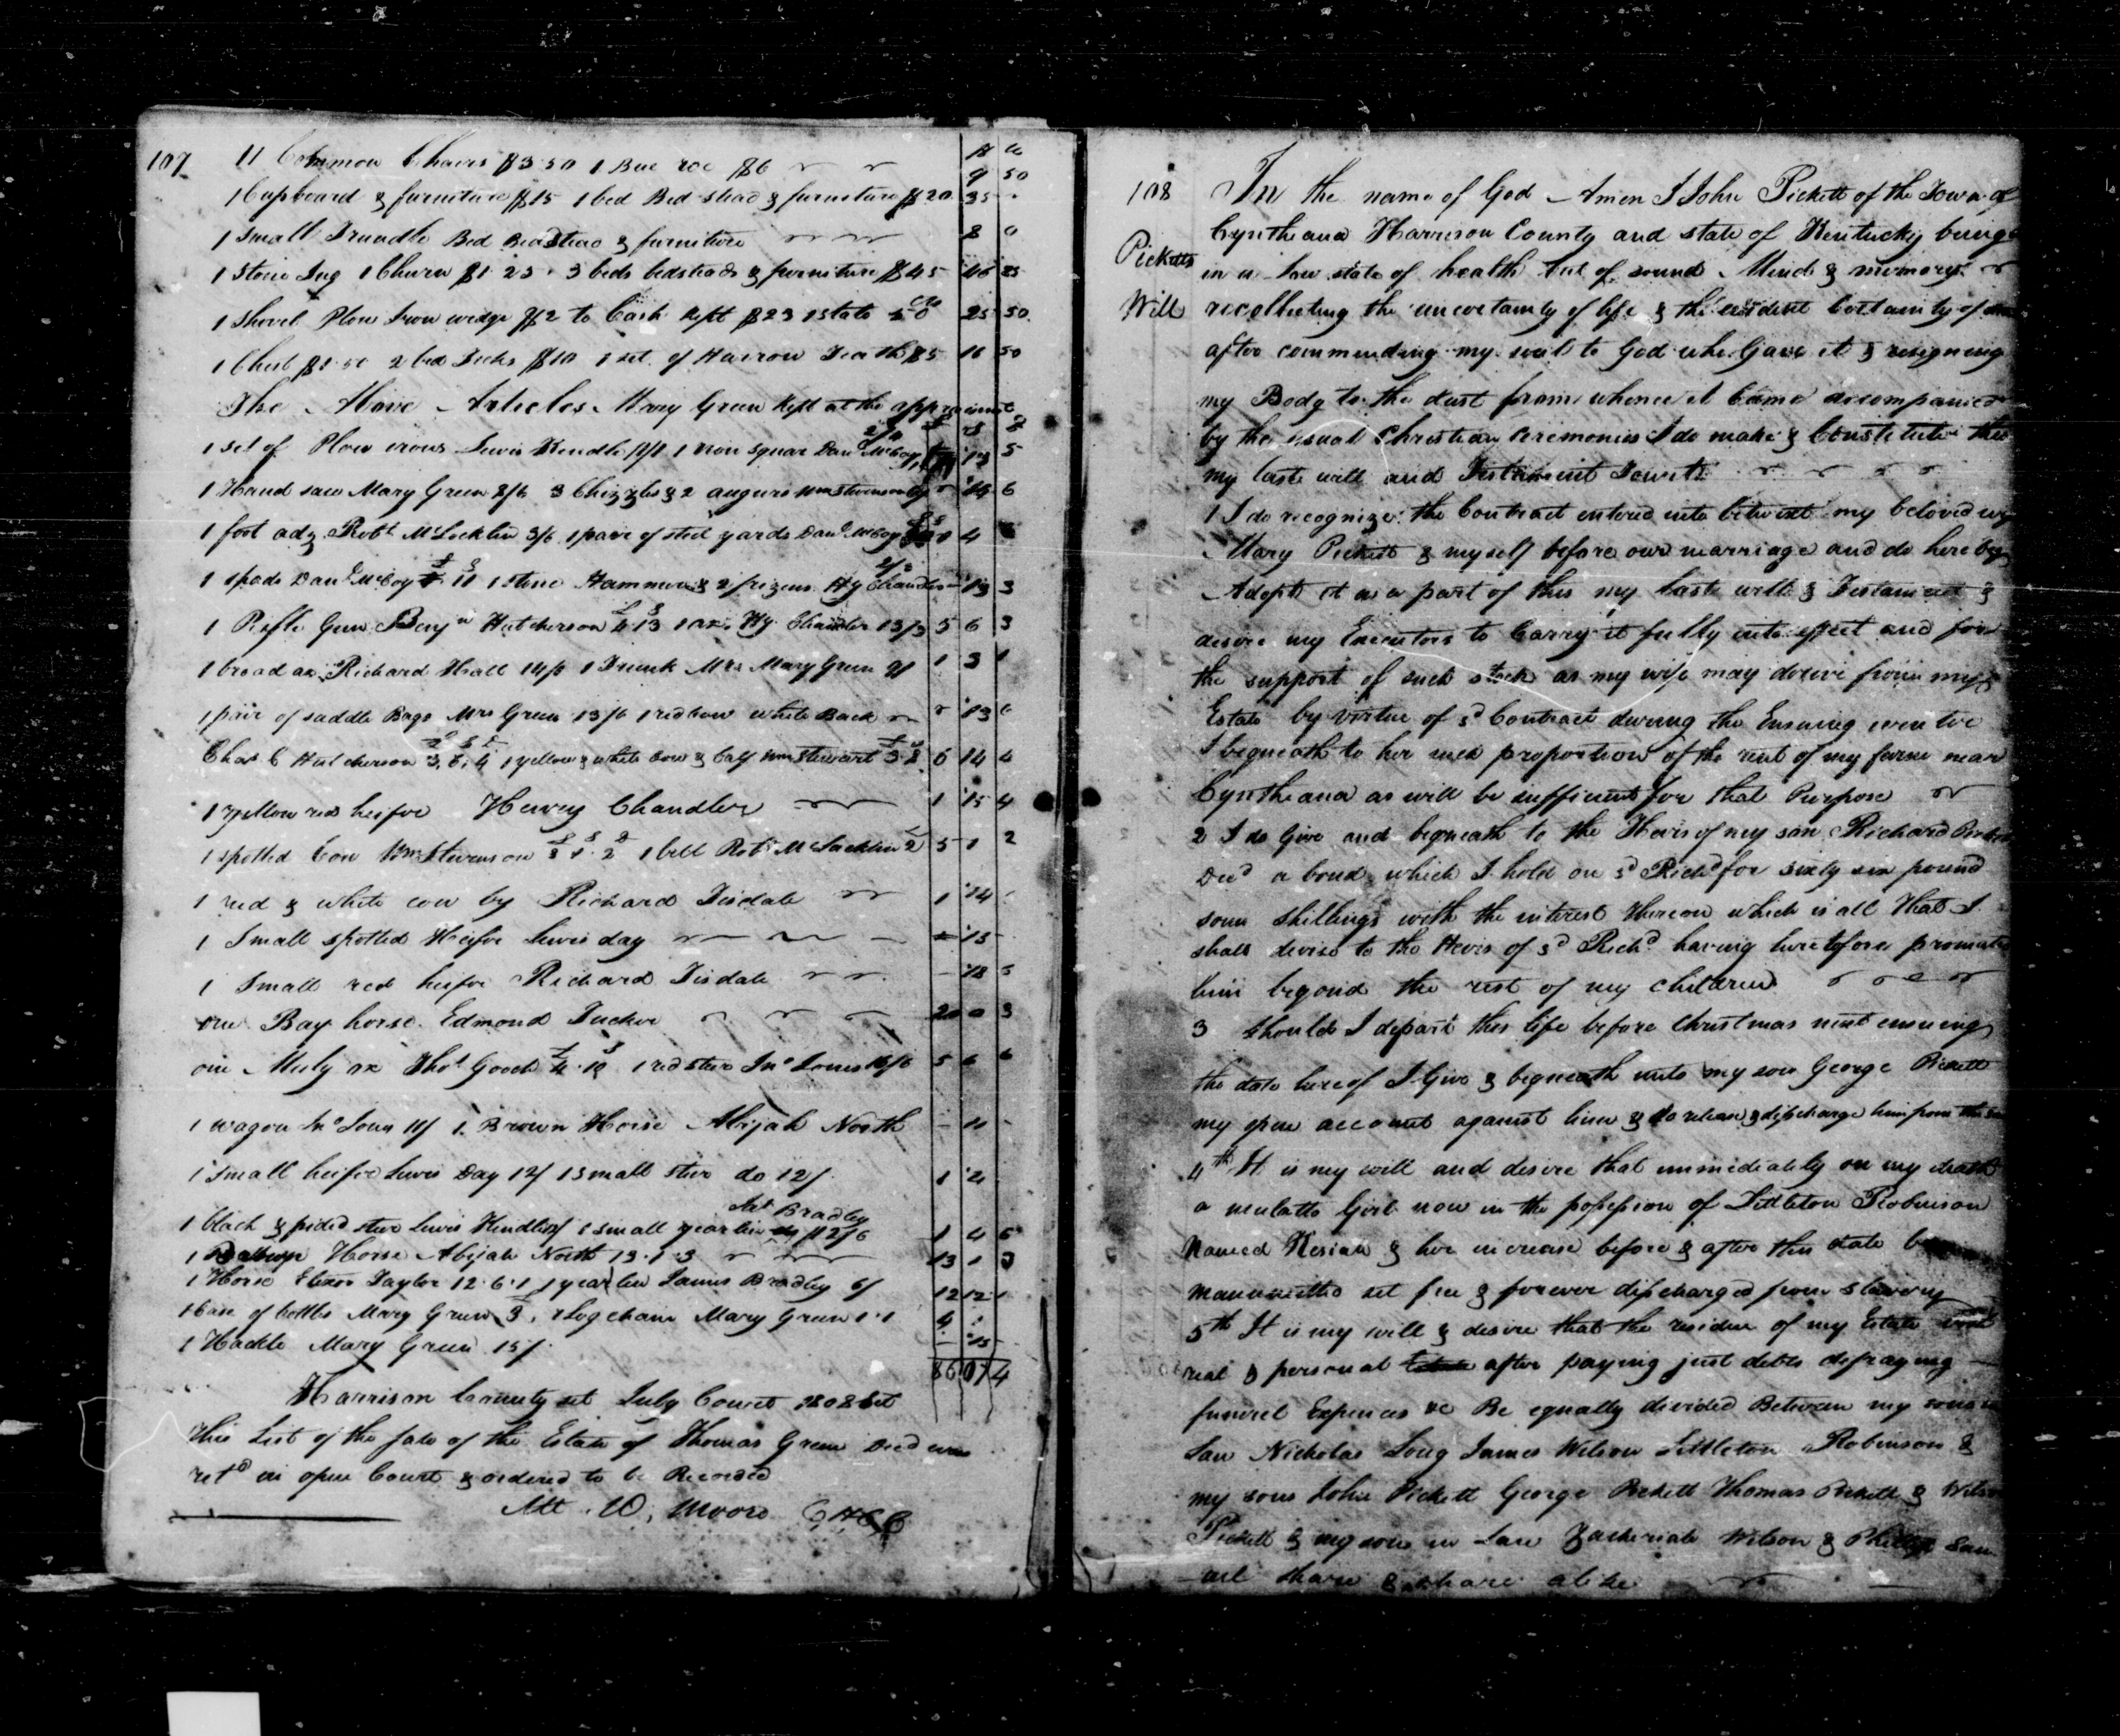 107
11 Common Chairs $3.50 1 Bee $6
9 50
1 Cupboard & furniture $15 1 bed Bed stead & furniture $20 35
1 Small Trundle Bed Beadstead & furniture 8 0
1 Stone Jug 1 Churn $1.25 3 beds bedsteads & furniture $45 46 25
1 Shovel Plow Iron wedge $2 to Cash Kept $23 1 state 50 25 50
1 Chest $1.50 2 bed Ticks $10 1 set of Harrow Teath $5 16 50
The Above Articles Mary Green Kept at the appraisment
1 set of Plow irons Lewis Kendle 1 iron squar Danl McCoy 5
1 Hand saw Mary Green 2/6 3 Chizzles & 2 augurs Wm Stevenson 6
1 foot adz Robt McLocklin 3/6 1 pair of steel yards Danl McCoy 4
1 spade Danl McCoy 1 stone Hammer & 2 Hy Chandler 13 3
1 Riffle Gun Benjn Hutcherson 4 13 1 ax Hy Chandler 13/3 5 6 3
1 broad ax Richard Hall 14/ 1 Trunk Mrs Mary Green 9/ 1 3 1
1 pair of saddle Bags Mrs Green 13/6 1 red cow white Back 13 6
Chas C Hutcherson 3.6.4 1 yellow & white Cow & Calf Wm Stewart 3.8 6 14 4
1 yellow red heifer Henry Chandler 1 15 4
1 spotted Cow Wm Stevenson 1 bell Robt McLacklin 5 1 2
1 red & white cow by Richard Tisdale 1 14
1 Small spotted Heifer Lewis day 15
1 Small red heifer Richard Tisdale 18 5
one Bay horse Edmond Tucker 20 0 3
one Muly ox Thos Gooch 4.10 1 red steer Jno Jones 16/6 5 6 6
1 wagon Jno Jones 11/ 1 Brown Horse Abijah North 11
1 small heifer Lewis Day 12/ 1 small steer do 12/ 1 4
Bradley
1 black & pided steer Lewis Kendle 1 small yearlin 12/6 1 4 6
1 Horse Abijah North 13.1.3 13 1 3
1 Horse Taylor 12.6.1 1 yearlin James Bradley 6/ 12 12 1
1 Case of bottles Mary Green 3, 1 Log chain Mary Green 1.1 4 1
1 Hackle Mary Green 15/ 15
86 07 4
Harrison County sct July Court 1802 sct
This List of the sale of the Estate of Thomas Green Decd was
retd in open Court & ordered to be Recorded
Att. W, Moore CHCC
108
Picketts
Will
In the name of God Amen I John Pickett of the Town of
Cyntheana Harrison County and state of Kentucky being
in a low state of health but of sound Mind & memory
recollecting the uncertainty of life & the evident Certainty of
after commending my soul to God who Gave it & resigning
my Body to the dust from whence it Came accompanied
by the usual Christian ceremonies I do make & Constitute this
my last will and Testament Towit
1 I do recognize the Contract entered into betwixt my beloved
Mary Pickett & myself before our marriage and do hereby
Adopt it as a part of this my last will & Testament &
desire my Executors to Carry it fully into effect and for
the support of such stock as my wife may derive from my
Estate by virtue of sd Contract during the Ensuing winter
I bequeath to her such proportion of the rent of my farm near
Cyntheana as will be sufficient for that Purpose
2 I do Give and bequeath to the Heirs of my son Richard Pickett
Decd a bond which I hold on sd Richd for sixty six pound
some shillings with the interest thereon which is all that I
shall devise to the Heirs of sd Richd having heretofore promoted
him beyond the rest of my children
3 should I depart this life before Christmas next ensuing
the date hereof I Give & bequeath unto my son George Pickett
my open account against him & do release & discharge him from
4th It is my will and desire that immediately on my death
a mulatto Girl now in the possession of Littleton Robinson
Named Kesiah & her increase before & after this date
manumitted set free & forever discharged from slavery
5th It is my will & desire that the residue of my Estate
real & personal after paying just debts defraying
funeral Expences &c Be equally divided Between my sons
Law Nicholas Long James Wilson Littleton Robinson &
my sons John Pickett George Pickett Thomas Pickett &
Pickett & my sons in Law Zacheriah Wilson &
share & share alike